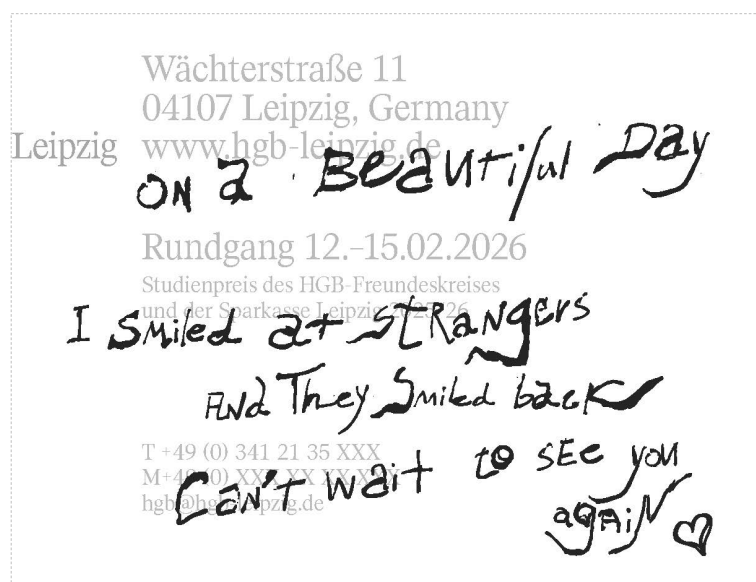 Wächterstraße 11
04107 Leipzig, Germany
Leipzig www.hgb-leipzig.de
ON a BEAUtiful Day
Rundgang 12.–15.02.2026
Studienpreis des HGB-Freundeskreises
und der Sparkasse Leipzig 2025/26
I SMiled at stRaNgers
ANd They Smiled back
T +49 (0) 341 21 35 XXX
M+49 (0) XXX XX XX XXX
Can't wait to SEe you
hgb@hgb-leipzig.de
agAiN ♡